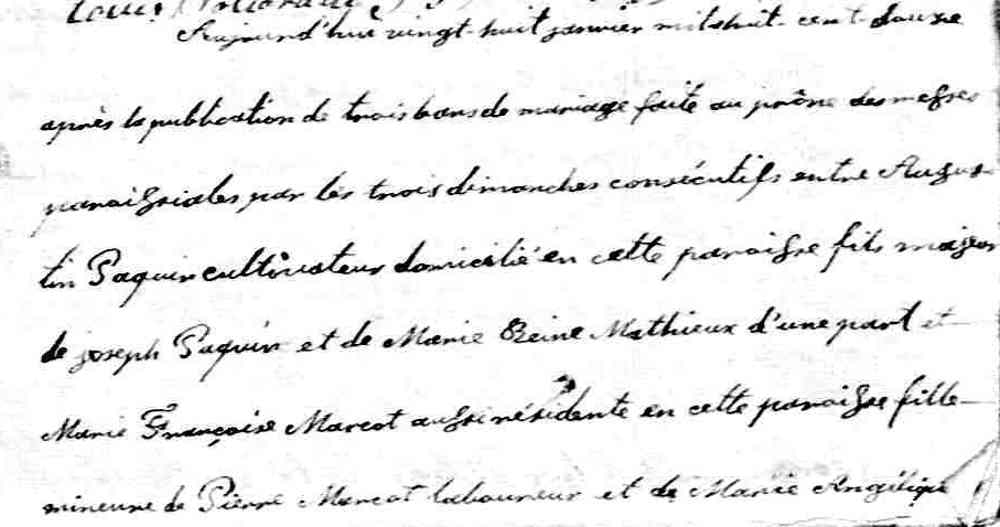 Louis
Aujourd'hui vingt-huit janvier mil huit-cent-douze
après la publication de trois bans de mariage faite au prône des messes
paroissiales par les trois dimanches consécutifs entre Augus-
tin Paquin cultivateur domicilié en cette paroisse fils majeur
de joseph Paquin et de Marie Reine Mathieux d'une part et
Marie Françoise Marcot aussi résidente en cette paroisse fille
mineure de Pierre Marcot laboureur et de Marie Angélique